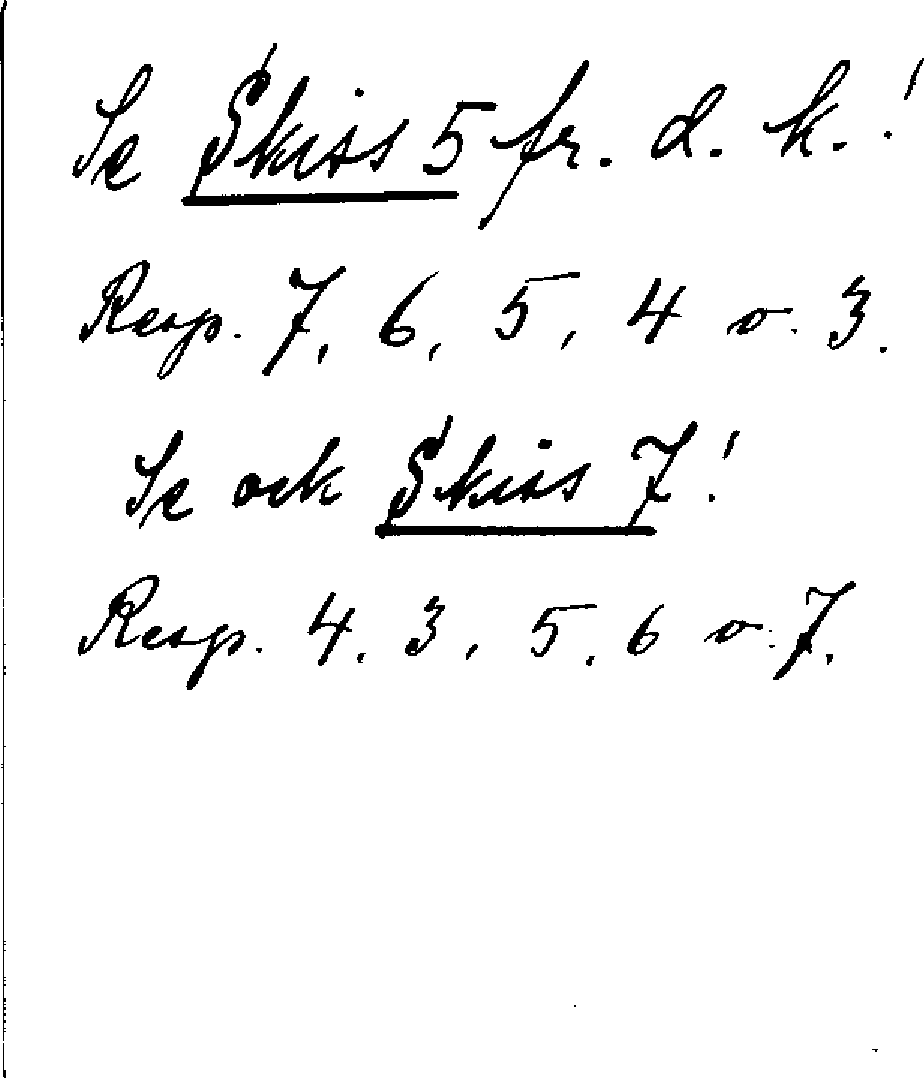 Se Skiss 5 fr. d. k.!
Resp. 7, 6, 5, 4 o. 3.
Se ock Skiss 7!
Resp. 4, 3, 5, 6 o. 7.